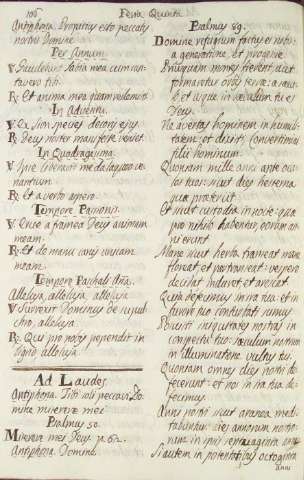 106
Feria Quinta
Antiphona. Propitius esto peccatis
nostris Domine.
Per Annum
V Gaudebunt labia mea cum can-
tavero tibi.
R Et anima mea quam redemisti
In Adventu.
V Ex Sion species decoris ejus.
R Deus noster manifeste veniet.
In Quadragesima.
V Ipse liberavit me de laqueo ve-
nantium.
R Et a verbo aspero.
Tempore Passionis.
V Erue a framea Deus animam
meam.
R Et de manu canis unicam
meam.
Tempore Paschali Aña.
Alleluja, alleluja, alleluja
V Surrexit Dominus de sepul-
chro, alleluja.
R Qui pro nobis pependit in
ligno alleluja
Ad Laudes.
Antiphona. Tibi soli peccavi Do-
mine miserere mei
Psalmus 50.
Miserere mei Deus
Antiphona Domine.
Psalmus 89.
Domine refugium factus es nobis:
a generatione, et progenie.
Priusquam montes fierent, aut
formaretur orbis terræ: a sæcu-
lo et usque in sæculum tu es
Deus.
Ne avertas hominem in humili-
tatem: et dixisti convertimini
filii hominum.
Quoniam mille anni ante ocu-
los tuos: sicut dies hesterna
quæ præteriit.
Et sicut custodia in nocte: quæ
pro nihilo habentur eorum an-
ni erunt
Mane sicut herba transeat mane
floreat et pertranseat: vespere
decidat induret et arescat.
Quia defecimus in ira tua: et in
furore tuo conturbati sumus
Posuisti iniquitates nostras in
conspectu tuo: sæculum nostrum
in illuminatione vultus tui.
Quoniam omnes dies nostri de-
fecerunt: et nos in ira tua de-
fecimus.
Anni nostri sicut aranea medi-
tabuntur: dies annorum nostro-
rum in ipsis septuaginta anni.
Si autem in potentatibus octoginta
anni